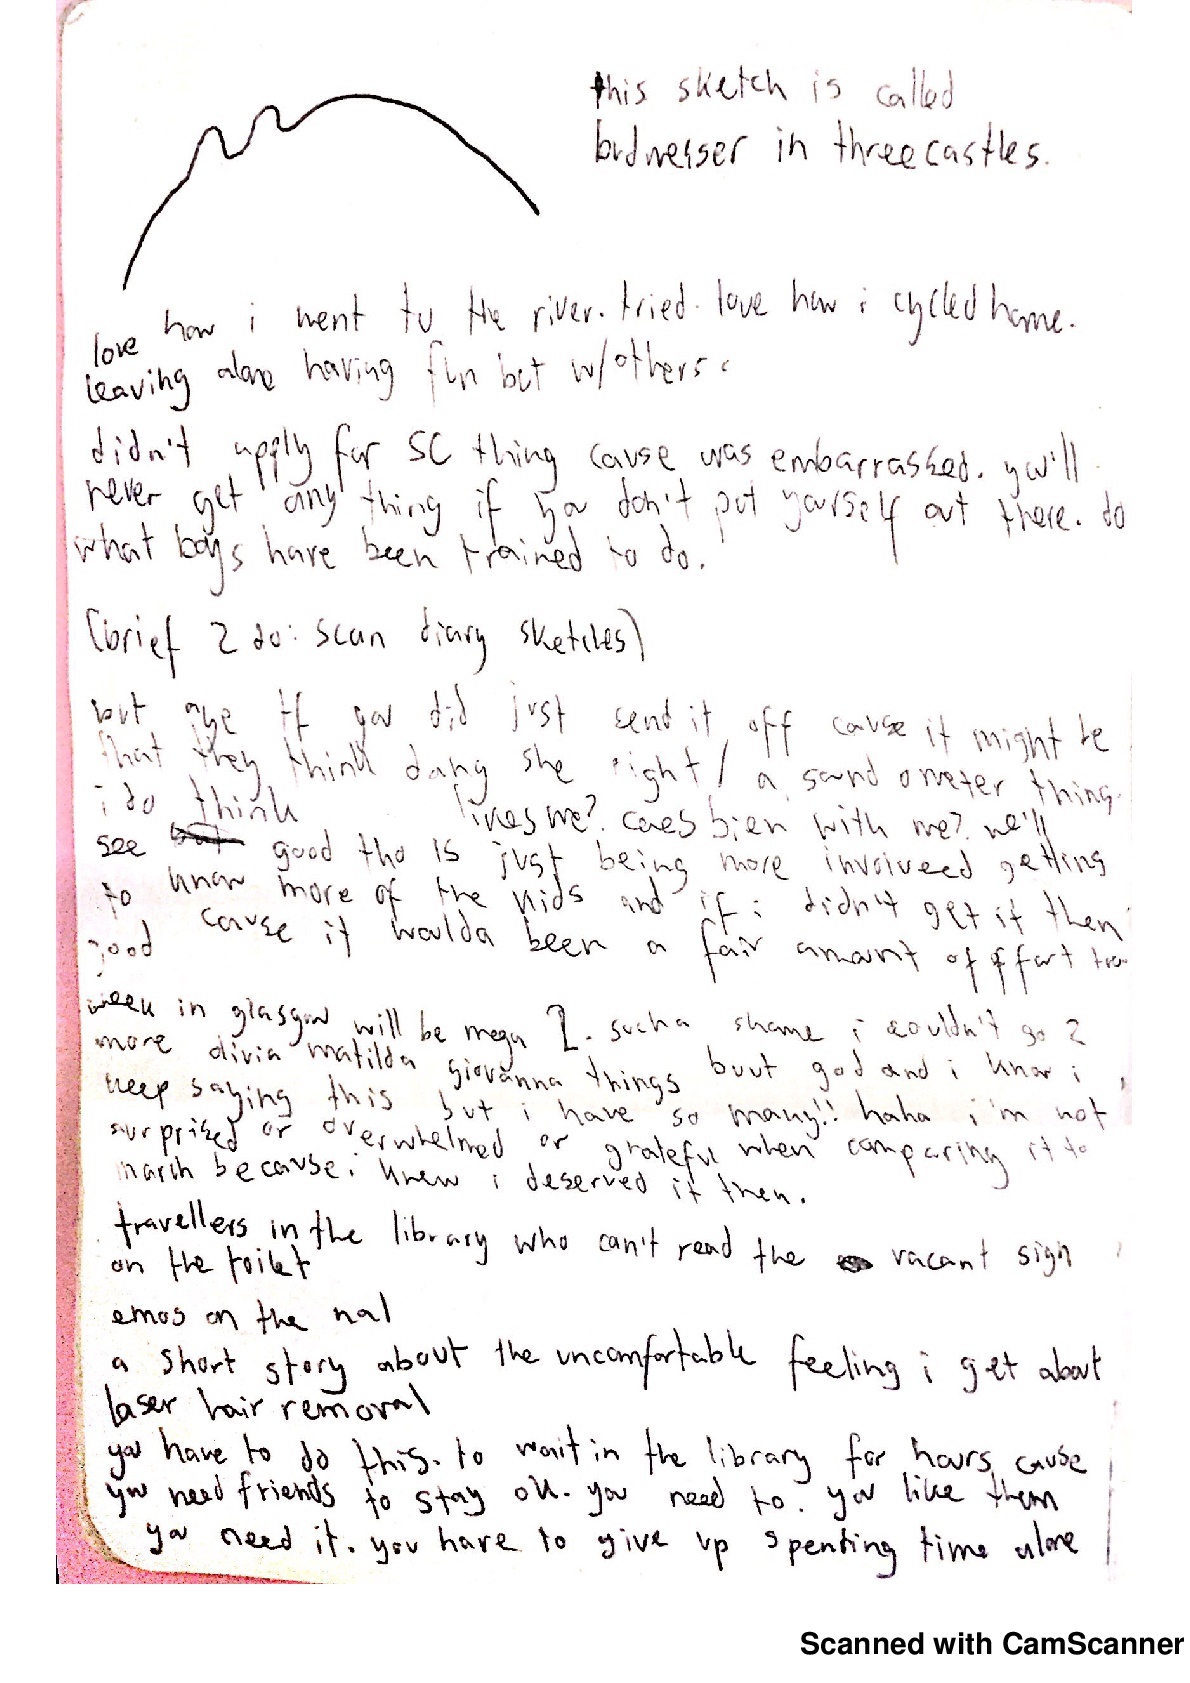 this sketch is called
budweiser in threecastles.
love how i went to the river. tried. love how i cycled home.
leaving alone having fun but w/others.
didn't apply for SC thing cause was embarrassed. you'll
never get anything if you don't put yourself out there. do
what boys have been trained to do.
(brief 2 do: scan diary sketches)
but aye if you did just send it off cause it might be
that they think dang she right / a sand ometer thing.
i do think likes me? caes bien with me? we'll
see good tho is just being more involveed getting
to know more of the kids and if i didn't get it then
good cause it woulda been a fair amount of effort
week in glasgow will be mega. such a shame i couldn't go 2
more olivia matilda giovanna things buut god and i know i
keep saying this but i have so many!! haha i'm not
surprised or overwhelmed or grateful when comparing it to
march because i knew i deserved it then.
travellers in the library who can't read the vacant sign
on the toilet
emos on the nal
a short story about the uncomfortable feeling i get about
laser hair removal
you have to do this. to wait in the library for hours cause
you need friends to stay ok. you need to. you like them
you need it. you have to give up spenting time alone
Scanned with CamScanner